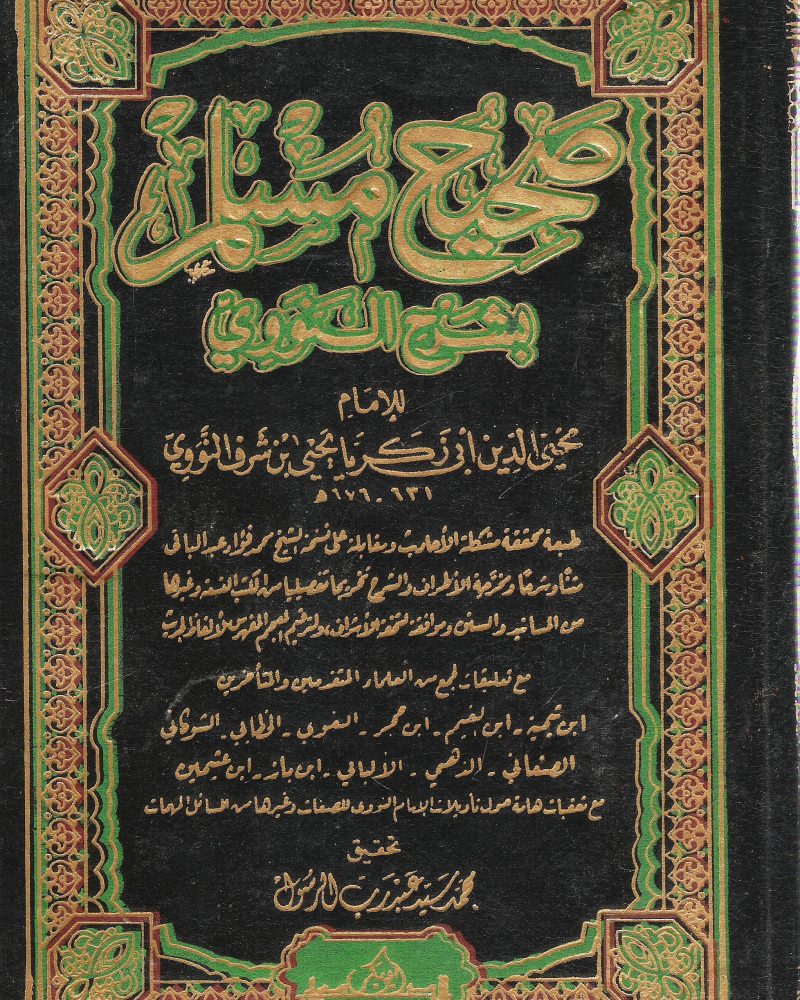 صحيح مسلم
بشرح النووي
للإمام
محيي الدين أبي زكريا يحيى بن شرف النووي
٦٣١ - ٦٧٦ هـ
طبعة محققة مشكلة الأحاديث ومقابلة على نسخة الشيخ محمد فؤاد عبد الباقي
متنًا وشرحًا ومخرجة الأطراف والشرح تخريجا تفصيليا من الكتب الستة وغيرها
من المسانيد والسنن وموافقة لتحفة الأشراف، ولترقيم المعجم المفهرس لألفاظ الحديث
مع تعليقات لجمع من العلماء المتقدمين والمتأخرين
ابن تيمية - ابن القيم - ابن حجر - البغوي - الخطابي - الشوكاني
الصنعاني - الذهبي - الألباني - ابن باز - ابن عثيمين
مع تعقبات هامة حول تأويلات الإمام النووي للصفات وغيرها من المسائل المهمات
تحقيق
محمد سيد عبد رب الرسول